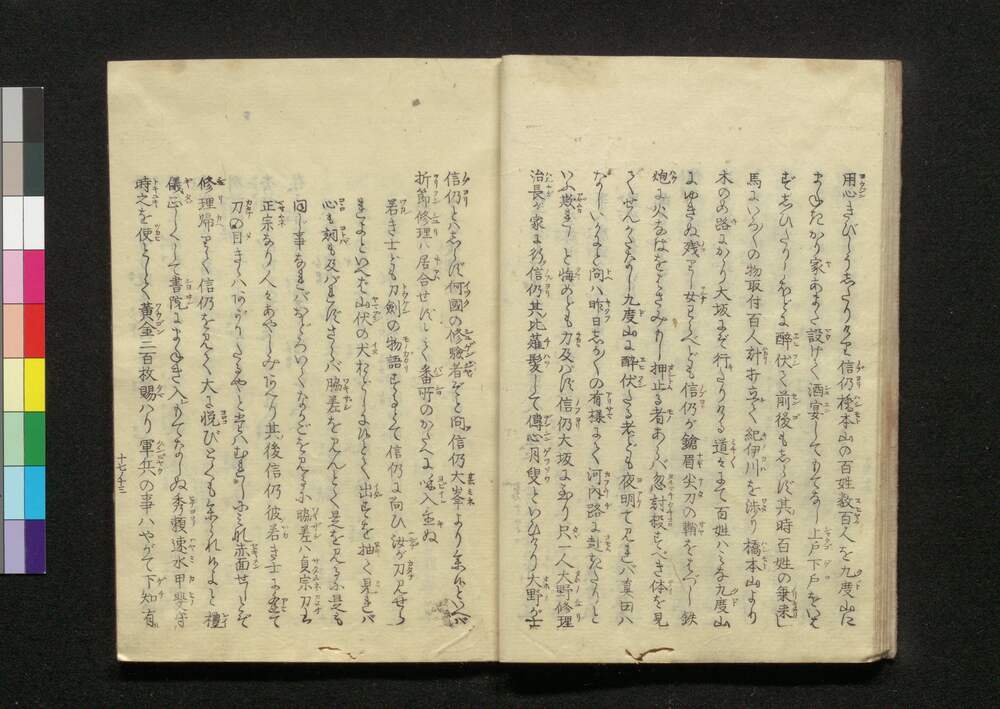 用心きびしうしたりける信仍橋本山の百姓数百人を九度山に
まねきかり家あまた設けて酒宴してもてなし上戸下戸をいはず
ずしひたりしほどに酔伏て前後もしらず其時百姓の乗来し
馬にいろ〱の物取付百人計打立て紀伊川を渉り橋本山より
木のめ路にかゝり大坂にぞ行たりける道々にて百姓ハみな九度山
にゆきぬ残りし女わらべども信仍が鎗眉尖刀の鞘をはづし鉄
炮に火なはをはさみかけ押止る者あらバ忽討殺すべき体を見
てせんかたなし九度山に酔伏たる者ども夜明て見れバ真田ハ
なしいかにと問ハ昨日しか〱の有様にて河内路に赴きたりと
いふ欺れつと悔めども力及バず信仍大坂に至り只一人大野修理
治長が家に行信仍其比薙髪して傳心月叟といひけり大野が士
信仍とハしらず何國の修験者ぞと問信仍大峯より来れりといへバ
折節修理ハ居合せずして番所のかたへに呼入置ぬ
若き士ども刀劍の物語するとて信仍に向ひ汝が刀見せら
れよといへば山伏の犬おどしに候とて出すを抽て見れバ
心も詞も及バれずさらバ脇差を見んとて是を見るに是も
同し事なれバおどろいてなかごを見るに脇差ハ貞宗刀ハ
正宗なり人々あやしみけり其後信仍彼若き士に逢て
刀の目きゝハあがりたるやと云バむれしに各赤面せしとぞ
修理歸りて信仍を見て大に悦びよくも来られけるよと禮
儀正しくして書院にまねき入もてなしぬ秀頼速水甲斐守
時之を使として黄金二百枚賜ハり軍兵の事ハやがて下知有
十七ノ十三